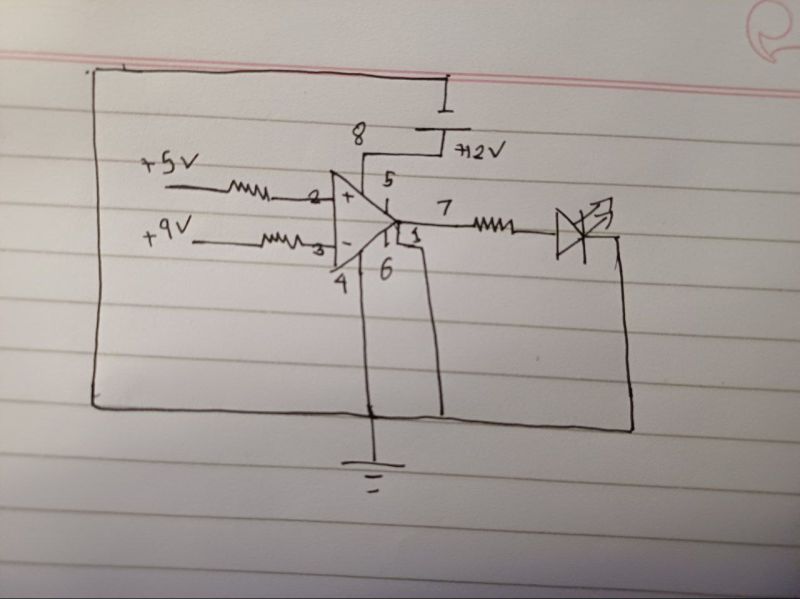 8
+12V
+5V
5
2
+
7
+9V
3
-
1
6
4